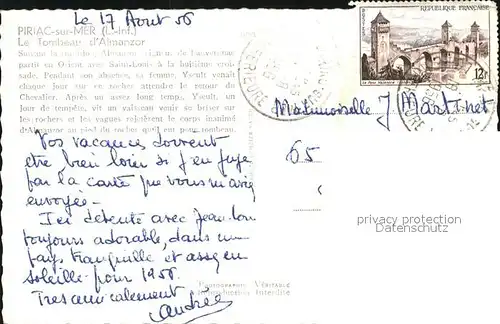 Le 17 Aout 56
PIRIAC-sur-MER (L.-Inf.)
Le Tombeau d'Almanzor
Suivant la tradition, Almanzor, de l'aventure
partit en Orient avec Saint-Louis à la huitième croi-
sade. Pendant son absence, sa femme, Yseult venait
chaque jour sur les rochers attendre le retour du
Chevalier. Après un assez long temps, Yseult, un
jour de tempête, vit un vaisseau venir se briser sur
les rochers et les vagues rejetèrent le corps inanimé
d'Almanzor au pied du rocher qui est son tombeau.
REPUBLIQUE FRANÇAISE
12F
Mademoiselle J Martinet
65
Vos vacances doivent
etre bien loin si j'en juge
par la carte que vous m'avez
envoyée.
Ici detente avec Jean-Lou
toujours adorable, dans un
pays tranquille et assez en-
soleillé pour 1956.
Tres amicalement
Andrée
PHOTOGRAPHIE VÉRITABLE
Reproduction Interdite
privacy protection
Datenschutz